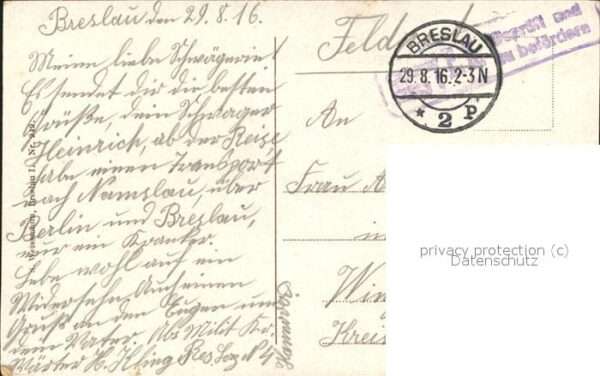 Breslau den 29.8.16.
Meine liebe Schwägerin!
Es sendet dir die besten
Grüße, dein Schwager
Heinrich, ab der Reise
habe einen Transport
nach Namslau, über
Berlin und Breslau,
nur ein Kranker
Lebe wohl auf ein
Widersehn. Auch einen
Gruß an den Eugen und
dein Vater. Abs Milit Kr.
Wärter H. Kling Res Laz
Feld
BRESLAU
29.8.16.2-3N
* 2 P
Geprüft und
zu befördern
An
Frau A
in
Kreis
privacy protection (c)
Datenschutz